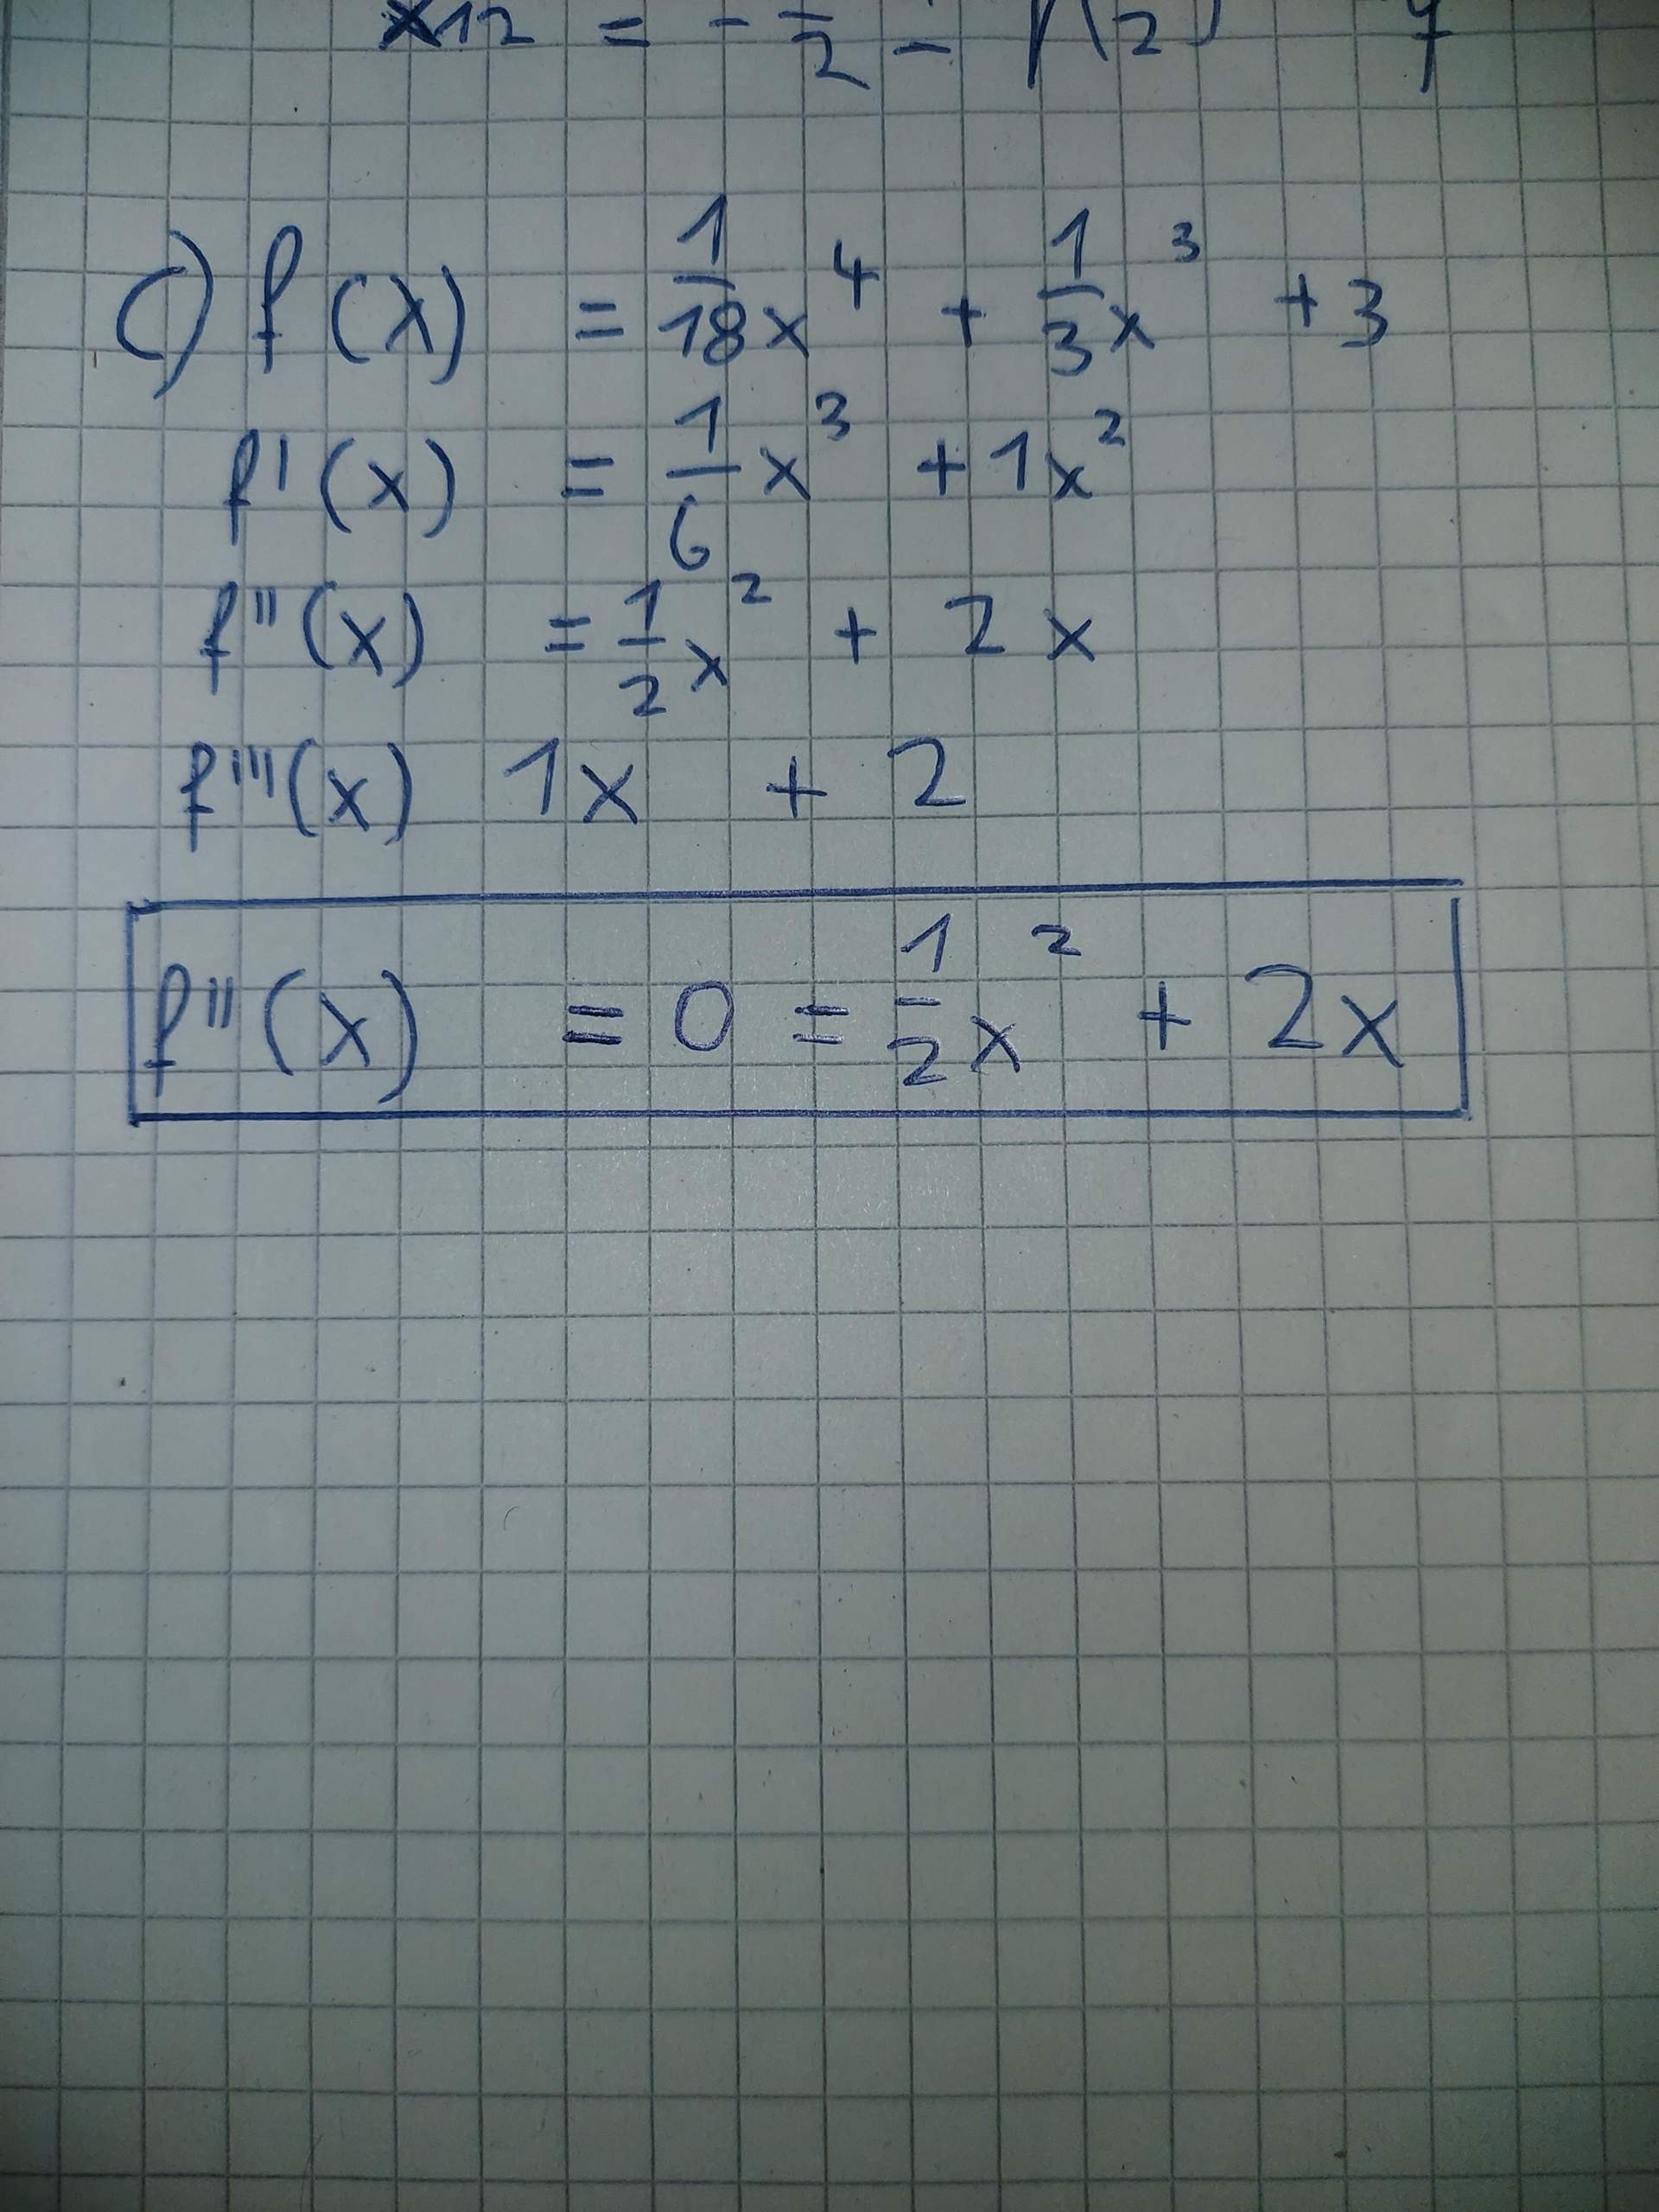 x12 = - - 2
c) f(x) = 1/18 x⁴ + 1/3 x³ + 3
f'(x) = 1/6 x³ + 1x²
f''(x) = 1/2 x² + 2x
f'''(x) 1x + 2
f''(x) = 0 = 1/2 x² + 2x